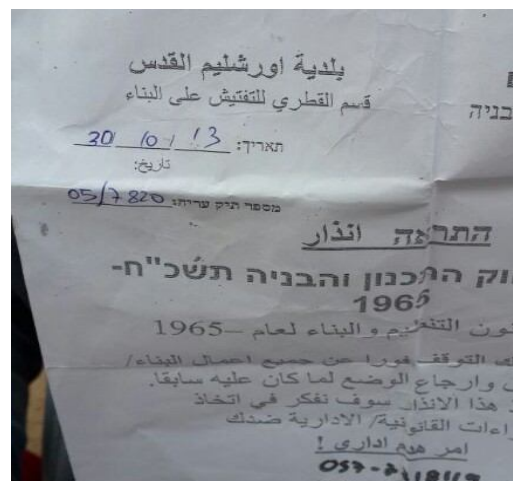 بلدية اورشليم القدس
قسم القطري للتفتيش على البناء
בניה
תאריך: 30/ 10/ 13
تاريخ:
מספר תיק עריה: 05/7820
התראה انذار
וק התכנון והבניה תשכ"ח-
1965
نون التنظيم و البناء لعام –1965
التوقف فورا عن جميع اعمال البناء/
وارجاع الوضع لما كان عليه سابقا.
هذا الانذار سوف نفكر في اتخاذ
راءات القانونية/ الادارية ضدك
امر هدم اداري !